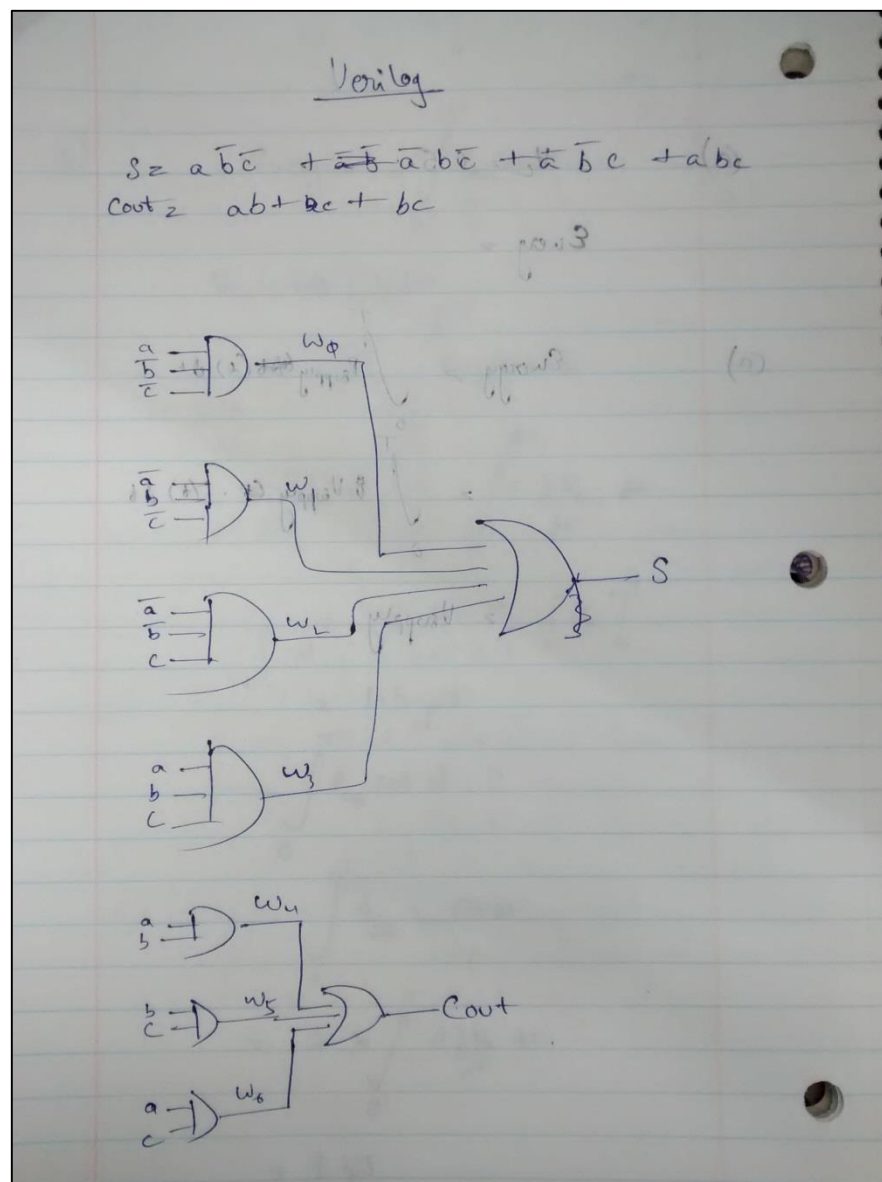 Verilog
S = a b̅ c̅ + a̅ b c̅ + a̅ b̅ c + a b c
Cout = ab + ac + bc
a
b̅
c̅
w0
a̅
b
c̅
w1
a̅
b̅
c
w2
a
b
c
w3
S
a
b
w4
b
c
w5
a
c
w6
Cout